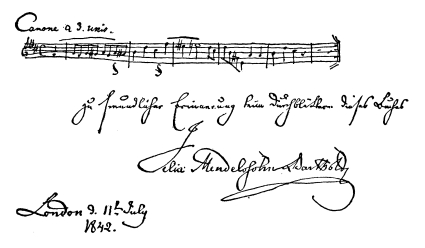 Canone a 3. unis.
zu freundlicher Erinnerung beim Durchblättern dieses Buches
Felix Mendelssohn Bartholdy
London d. 11t July
1842.